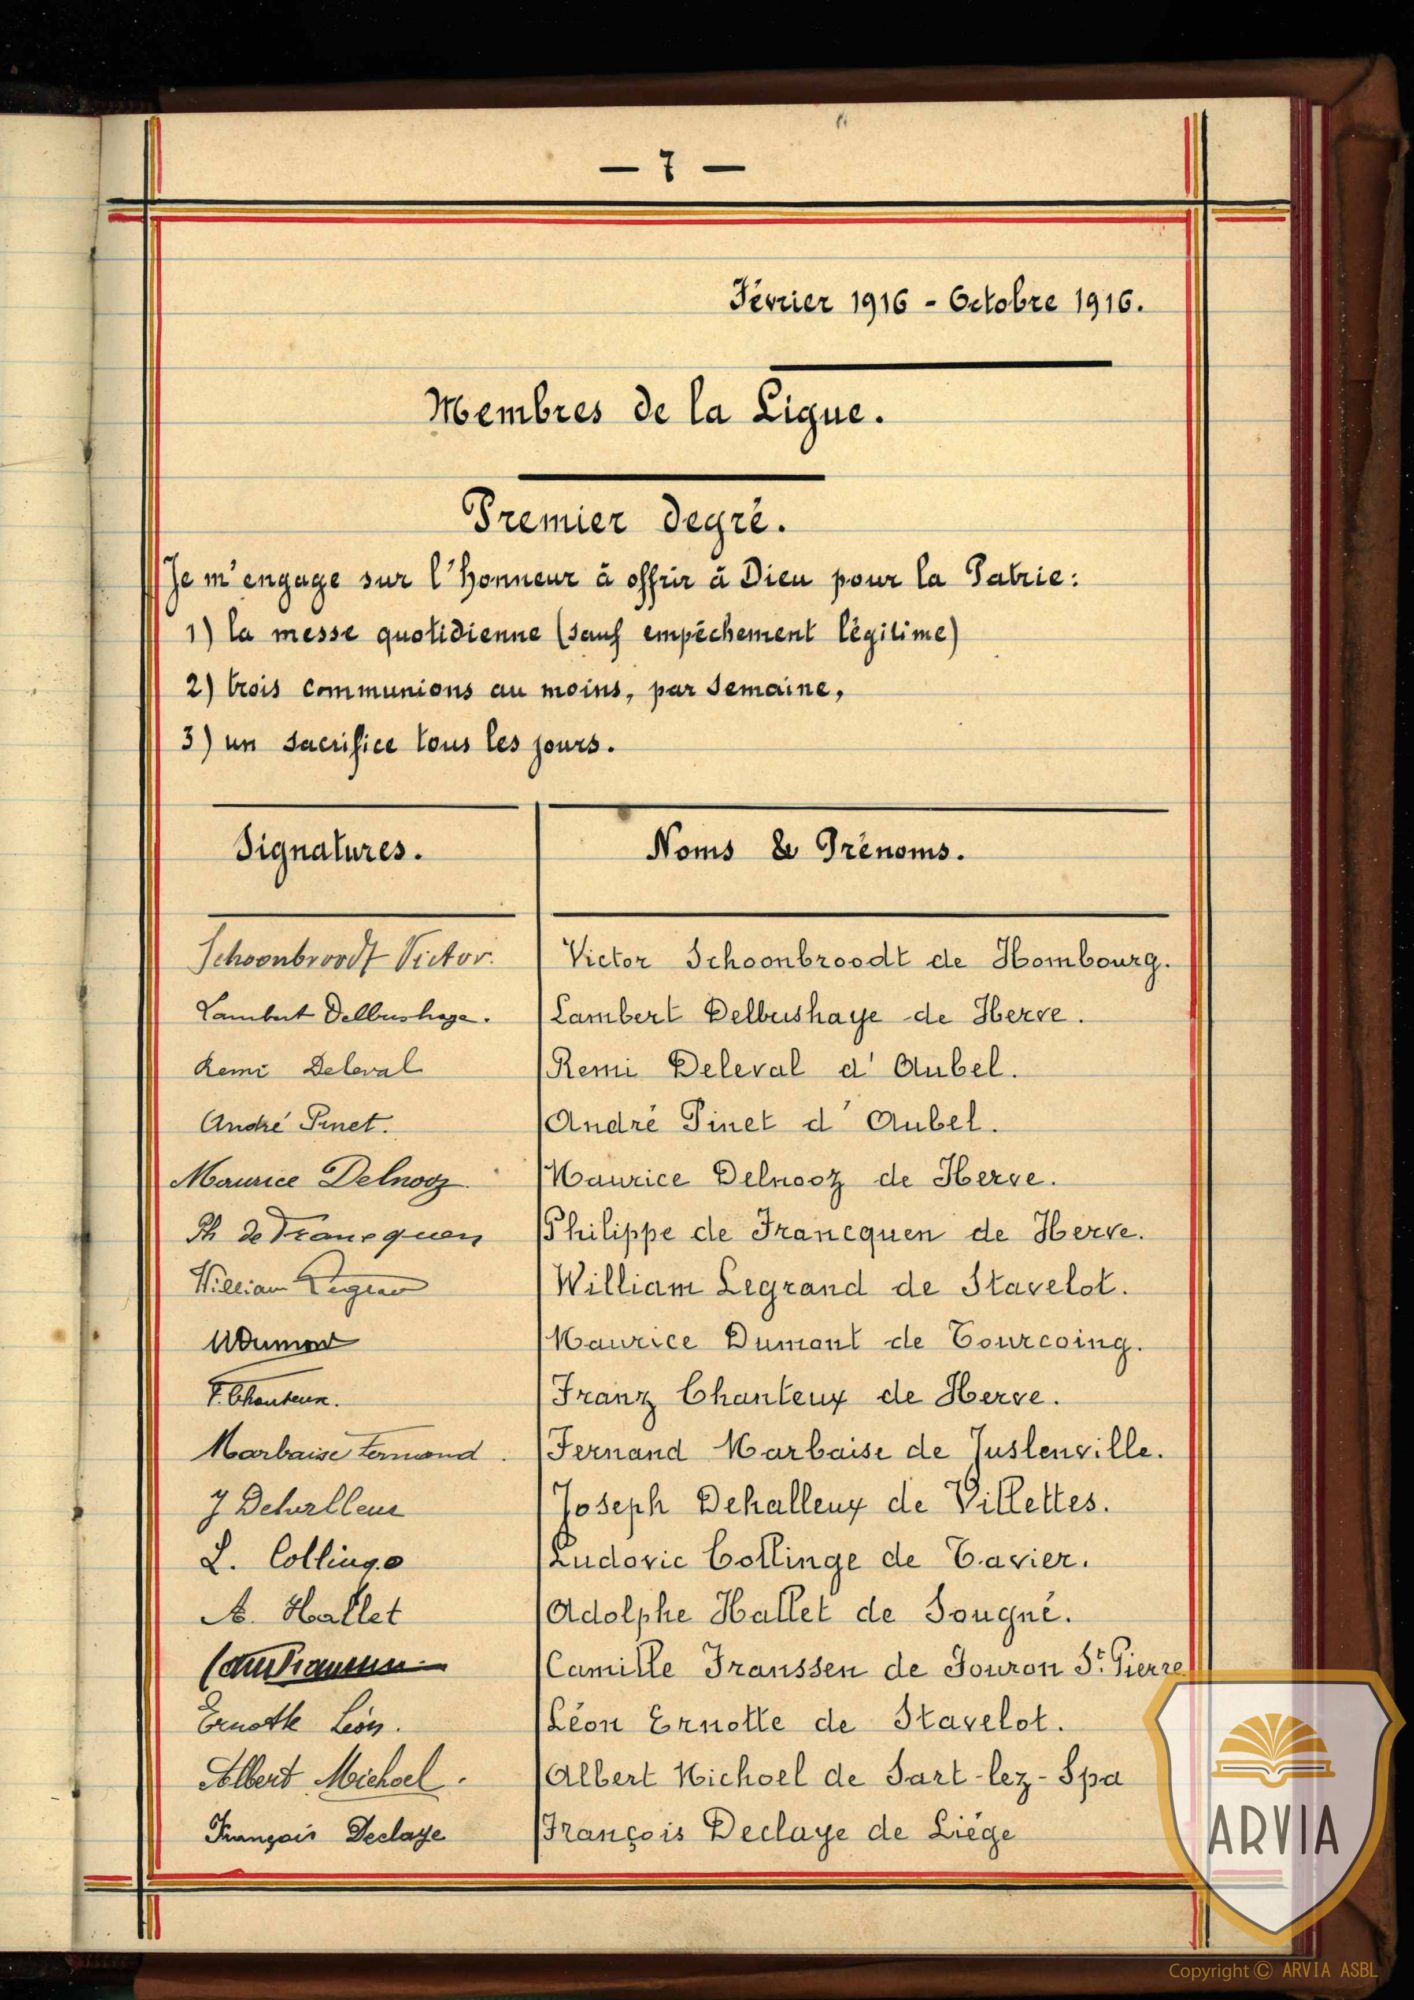 — 7 —
Février 1916 - Octobre 1916.
Membres de la Ligue.
Premier degré.
Je m'engage sur l'honneur à offrir à Dieu pour la Patrie:
1) la messe quotidienne (sauf empêchement légitime)
2) trois communions au moins, par semaine,
3) un sacrifice tous les jours.
Signatures. Noms & Prénoms.
Schoonbroodt Victor. Victor Schoonbroodt de Hombourg.
Lambert Delbushaye. Lambert Delbushaye de Herve.
Remi Deleval Remi Deleval d'Aubel.
André Pinet. André Pinet d'Aubel.
Maurice Delnooz Maurice Delnooz de Herve.
Ph de Francquen Philippe de Francquen de Herve.
William Legrand William Legrand de Stavelot.
MDumont Maurice Dumont de Tourcoing.
F. Chanteux. Franz Chanteux de Herve.
Marbaise Fernand. Fernand Marbaise de Juslenville.
J Dehalleux Joseph Dehalleux de Villettes.
L. Collinge Ludovic Collinge de Tavier.
A. Hallet Adolphe Hallet de Sougné.
Cam Franssen Camille Franssen de Fouron St. Pierre
Ernotte Léon. Léon Ernotte de Stavelot.
Albert Michoel. Albert Michoel de Sart-lez-Spa
François Declaye François Declaye de Liége
ARVIA
Copyright © ARVIA ASBL